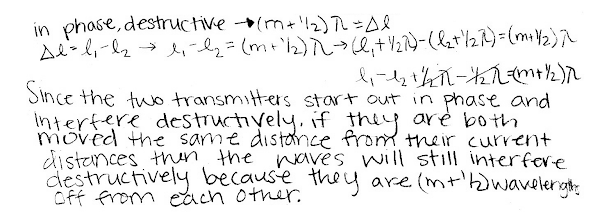 in phase, destructive → (m+1/2)λ = Δl
Δl = l₁-l₂ → l₁-l₂ = (m+1/2)λ → (l₁+1/2λ)-(l₂+1/2λ) = (m+1/2)λ
l₁-l₂+1/2λ-1/2λ=(m+1/2)λ
Since the two transmitters start out in phase and
interfere destructively, if they are both
moved the same distance from their current
distances then the waves will still interfere
destructively because they are (m+1/2) wavelengths
off from each other.